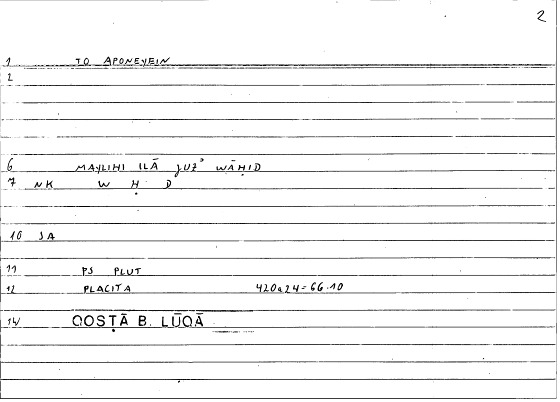 2
1 TO APONEYEIN
2
6 MAYLIHI ILĀ JUZ' WĀḤID
7 NK W Ḥ D
10 SA
11 PS PLUT
12 PLACITA 420a24=66.10
14 QOSṬĀ B. LŪQĀ